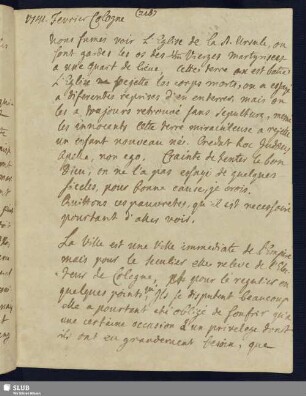 1741. Fevrier Cologne
Nous fumes voir l'Eglise de la S. Ursule, ou
sont gardés les os des Vierges martyrisees
a un quart de lieue. Cette terre est benite
L'Eglise rejette les corps morts, on a essayé
a differentes reprises d'en enterrer, mais on
les a toujours retrouvé sans sepulture, même
les innocents. Cette terre miraculeuse a rejetté
un enfant nouveau né. Credat hoc Judæus
Apella, non ego. Crainte de tenter le bon
Dieu, on ne l'a pas essayé de quelques
siecles, pour bonne cause, je crois.
Quittons ces pauvretes, qu'il est necessaire
pourtant d'aller voir.
La Ville est une Ville immediate de l'Empire
mais pour le seculier elle releve de
de Cologne, pour le regulier en
quelques points. Ils se disputent beaucoup
elle a pourtant été obligé de souffrir qu'à
une certaine occasion d'un privilege dont
ils ont eu grandement besoin, que
SLUB